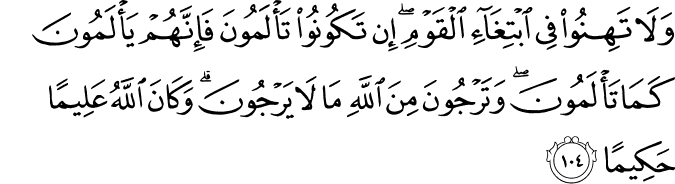 وَلَا تَهِنُوا۟ فِى ٱبْتِغَآءِ ٱلْقَوْمِ ۖ إِن تَكُونُوا۟ تَأْلَمُونَ فَإِنَّهُمْ يَأْلَمُونَ
كَمَا تَأْلَمُونَ ۖ وَتَرْجُونَ مِنَ ٱللَّهِ مَا لَا يَرْجُونَ ۗ وَكَانَ ٱللَّهُ عَلِيمًا
حَكِيمًا ١٠٤